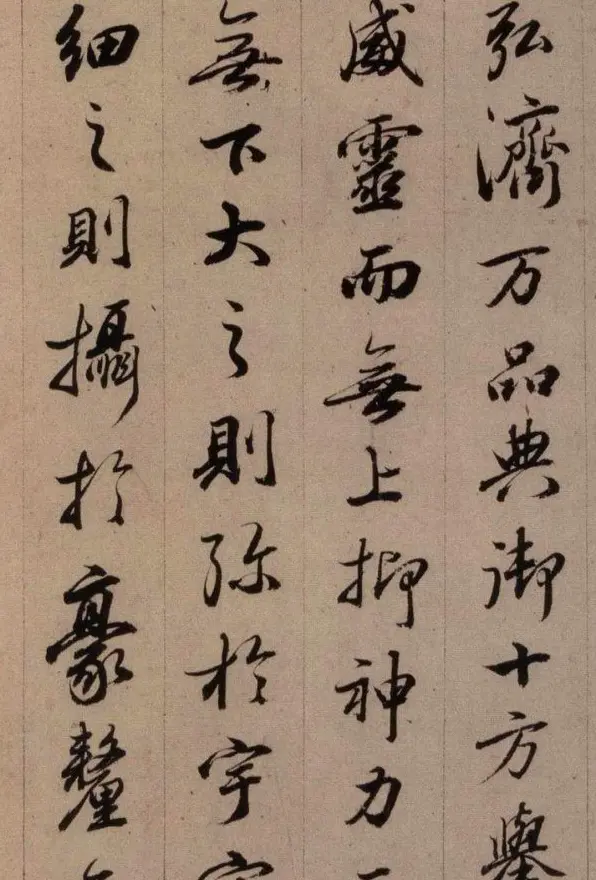 弘濟万品典御十方舉
威靈而無上抑神力
無下大之則弥於宇宙
細之則攝於豪釐